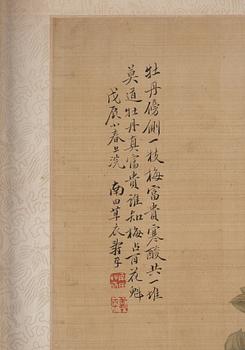 牡丹傍側一枝梅富貴寒酸共一堆
莫道牡丹真富貴誰知梅占百花魁
戊辰小春上浣 南田草衣壽平